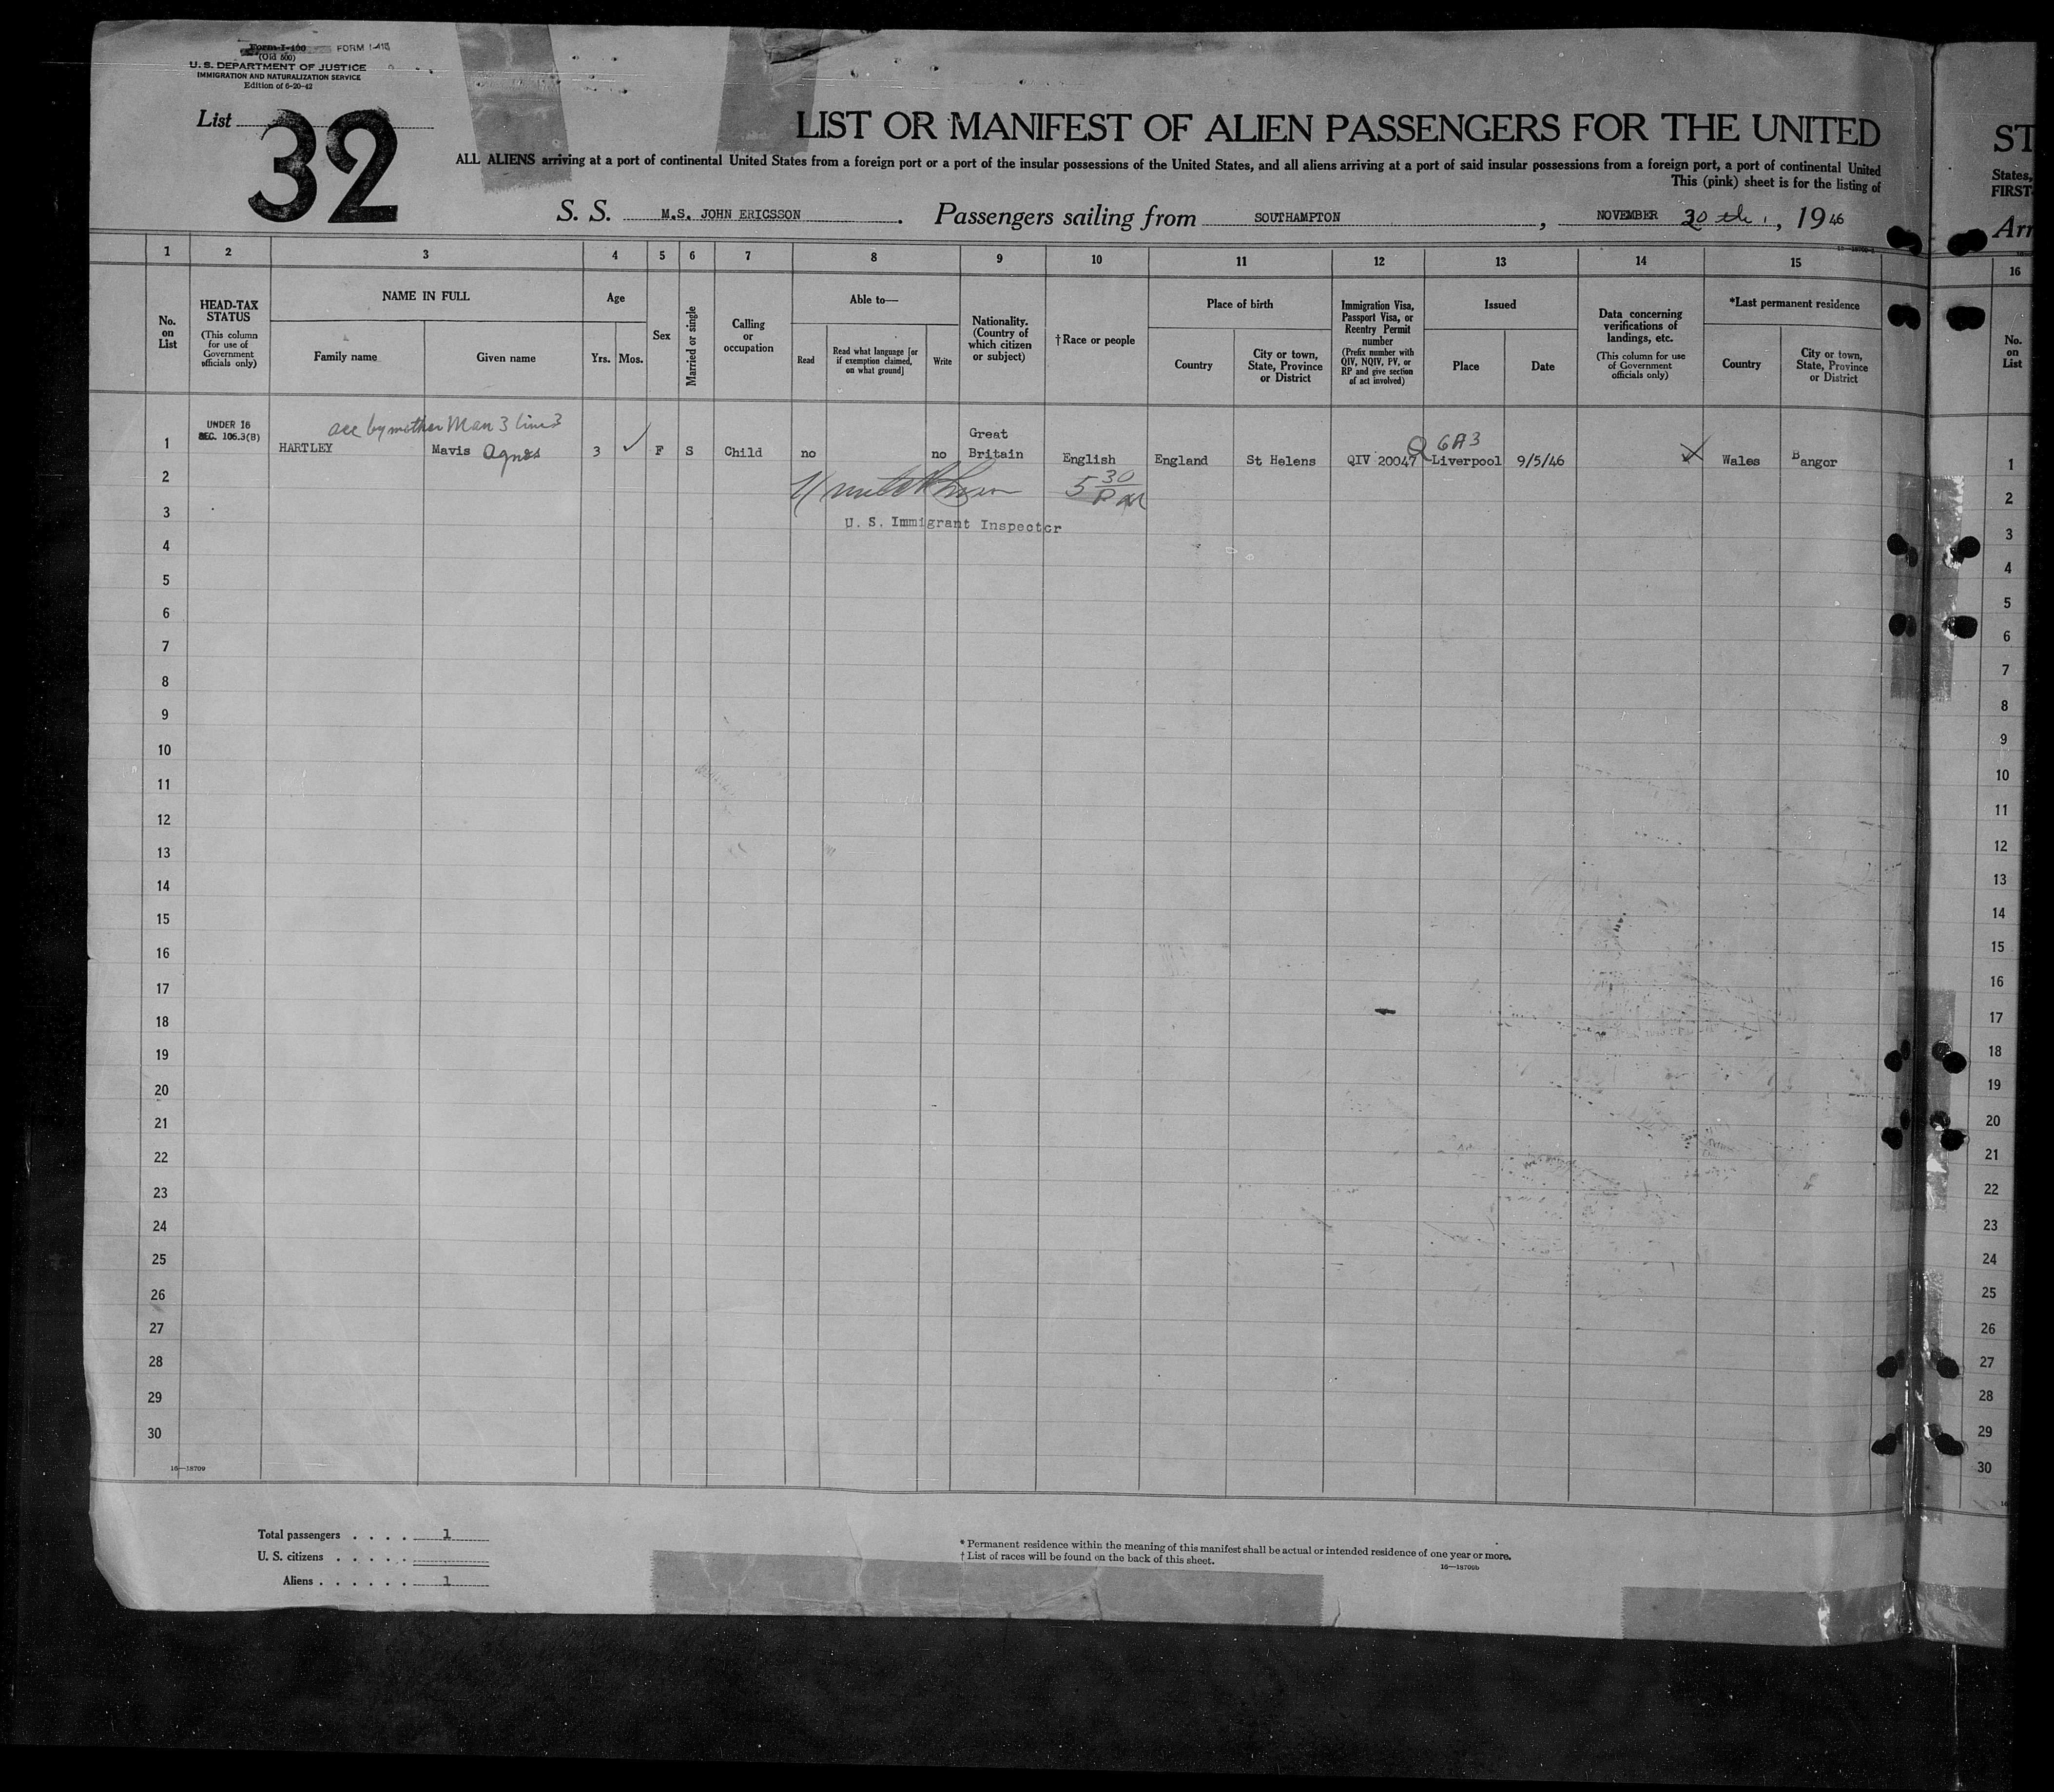 Form I-100 FORM I-415
(Old 500)
U. S. DEPARTMENT OF JUSTICE
IMMIGRATION AND NATURALIZATION SERVICE
Edition of 6-20-42
List 32
LIST OR MANIFEST OF ALIEN PASSENGERS FOR THE UNITED
ALL ALIENS arriving at a port of continental United States from a foreign port or a port of the insular possessions of the United States, and all aliens arriving at a port of said insular possessions from a foreign port, a port of continental United
This (pink) sheet is for the listing of
S. S. M.S. JOHN ERICSSON. Passengers sailing from SOUTHAMPTON, NOVEMBER 20 th, 1946
1 2 3 4 5 6 7 8 9 10 11 12 13 14 15
No. on List
HEAD-TAX STATUS
(This column for use of Government officials only)
NAME IN FULL
Family name
Given name
Age
Yrs.
Mos.
Sex
Married or single
Calling or occupation
Able to—
Read
Read what language [or if exemption claimed, on what ground]
Write
Nationality. (Country of which citizen or subject)
†Race or people
Place of birth
Country
City or town, State, Province or District
Immigration Visa, Passport Visa, or Reentry Permit number
(Prefix number with QIV, NQIV, PV, or RP and give section of act involved)
Issued
Place
Date
Data concerning verifications of landings, etc.
(This column for use of Government officials only)
*Last permanent residence
Country
City or town, State, Province or District
acc by mother Man 3 line 3
UNDER 16
SEC. 105.3(B)
1 HARTLEY Mavis Agnes 3 F S Child no no Great Britain English England St Helens QIV 20047 Q 6A3 Liverpool 9/5/46 Wales Bangor
2 5 30
3 U. S. Immigrant Inspector
4
5
6
7
8
9
10
11
12
13
14
15
16
17
18
19
20
21
22
23
24
25
26
27
28
29
30
16—18709
Total passengers . . . . 1
U. S. citizens . . . . .
Aliens . . . . . . 1
* Permanent residence within the meaning of this manifest shall be actual or intended residence of one year or more.
† List of races will be found on the back of this sheet.
16—18709b
ST
States,
FIRST-
Arr
16
No. on List
1
2
3
4
5
6
7
8
9
10
11
12
13
14
15
16
17
18
19
20
21
22
23
24
25
26
27
28
29
30